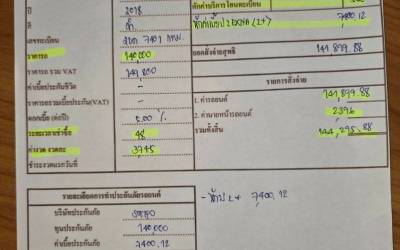 หักค่าบริการ โอนทะเบียน
ปี 2018 7400.12
สี ดำ
เลขทะเบียน 7401 กทม. ยอดสั่งจ่ายสุทธิ 141,899.88
ราคารถ 140,000
ราคารถ รวม VAT 149,800 รายการสั่งจ่าย
ค่าเบี้ยประกันชีวิต - 1. ค่ารถยนต์ 141,899.88
ราคารถรวมเบี้ยประกัน(VAT) - 2. ค่านายหน้ารถยนต์ 2396
ดอกเบี้ย (ต่อปี) 5.00 % รวมทั้งสิ้น 144,295.88
ระยะเวลาเช่าซื้อ 48
ค่างวด งวดละ 3,745
ชำระงวดแรกวันที่
รายละเอียดการทำประกันภัยรถยนต์
บริษัทประกันภัย
ทุนประกันภัย 140,000
ค่าเบี้ยประกันภัย 7400.12
2+ 7,400.12